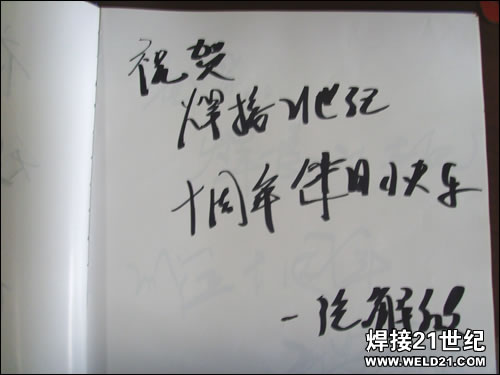 祝贺
焊接21世纪
十周年日快乐
一汽解放
焊接21世纪
WWW.WELD21.COM